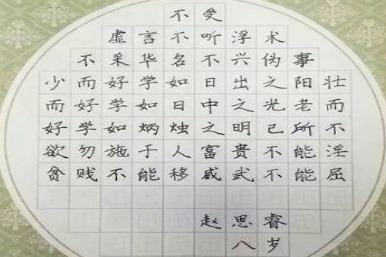 不受
虚言不听浮术
不采华名不兴伪事
少而好学如日出之阳壮
而好学如日中之光老而
好学如炳烛之明已所不
欲勿施于人富貴不能淫
贫贱不能移威武不能屈
赵思睿
八岁